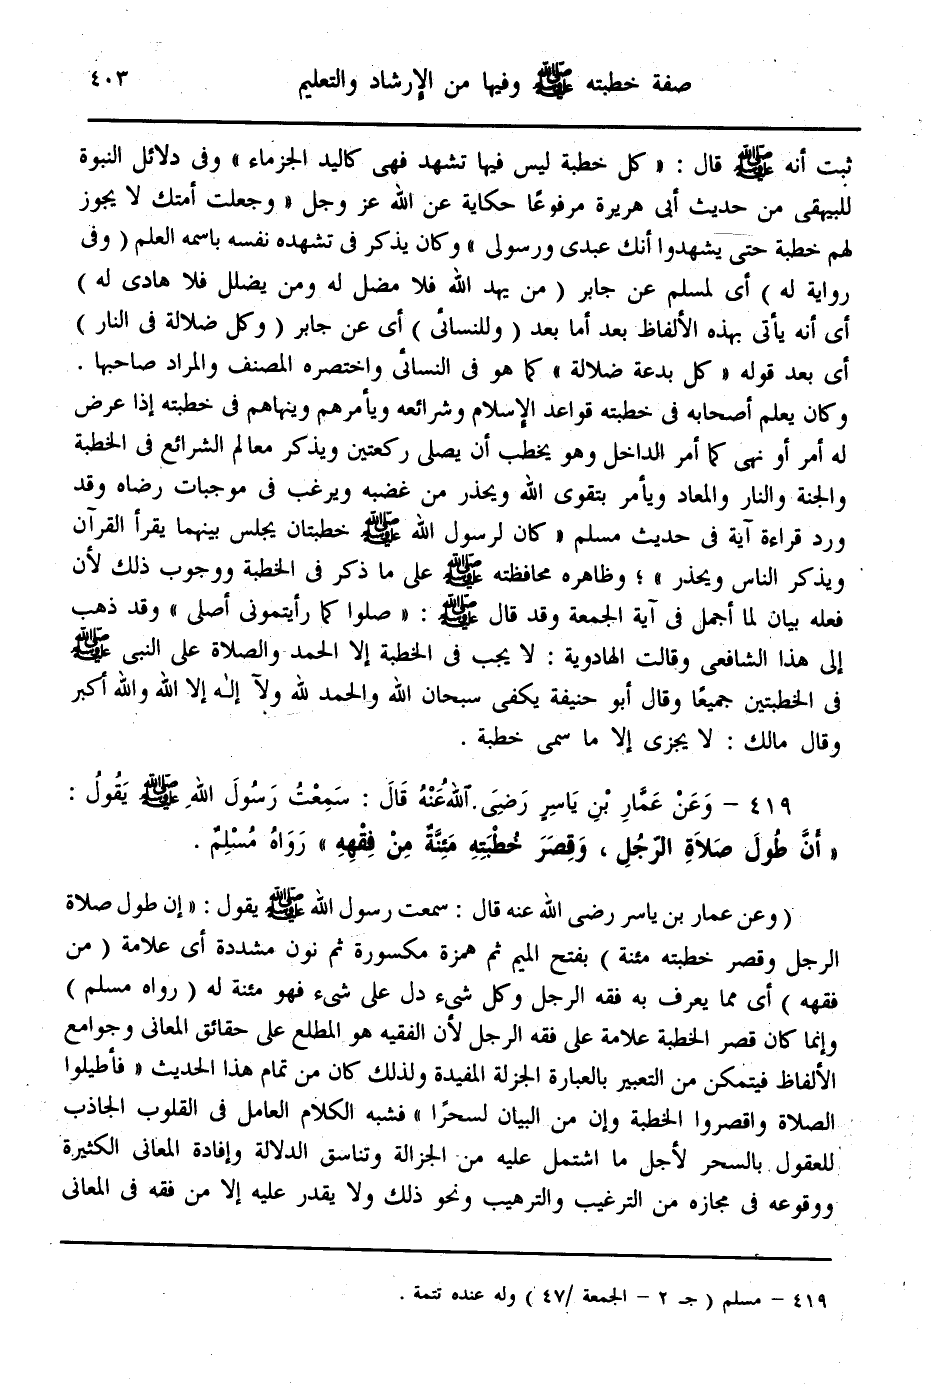 صفة خطبته ﷺ وفيها من الإرشاد والتعليم ٤٠٣
ثبت أنه ﷺ قال : « كل خطبة ليس فيها تشهد فهى كاليد الجزماء » وفى دلائل النبوة
للبيهقى من حديث أبى هريرة مرفوعًا حكاية عن الله عز وجل « وجعلت أمتك لا يجوز
لهم خطبة حتى يشهدوا أنك عبدى ورسولى » وكان يذكر فى تشهده نفسه باسمه العلم ( وفى
رواية له ) أى لمسلم عن جابر ( من يهد الله فلا مضل له ومن يضلل فلا هادى له )
أى أنه يأتى بهذه الألفاظ بعد أما بعد ( وللنسائى ) أى عن جابر ( وكل ضلالة فى النار )
أى بعد قوله « كل بدعة ضلالة » كما هو فى النسائى واختصره المصنف والمراد صاحبها .
وكان يعلم أصحابه فى خطبته قواعد الإسلام وشرائعه ويأمرهم وينهاهم فى خطبته إذا عرض
له أمر أو نهى كما أمر الداخل وهو يخطب أن يصلى ركعتين ويذكر معالم الشرائع فى الخطبة
والجنة والنار والمعاد ويأمر بتقوى الله ويحذر من غضبه ويرغب فى موجبات رضاه وقد
ورد قراءة آية فى حديث مسلم « كان لرسول الله ﷺ خطبتان يجلس بينهما يقرأ القرآن
ويذكر الناس ويحذر » ؛ وظاهره محافظته ﷺ على ما ذكر فى الخطبة ووجوب ذلك لأن
فعله بيان لما أجمل فى آية الجمعة وقد قال ﷺ : « صلوا كما رأيتمونى أصلى » وقد ذهب
إلى هذا الشافعى وقالت الهادوية : لا يجب فى الخطبة إلا الحمد والصلاة على النبى ﷺ
فى الخطبتين جميعًا وقال أبو حنيفة يكفى سبحان الله والحمد لله ولآ إلٰه إلا الله والله أكبر
وقال مالك : لا يجزى إلا ما سمى خطبة .
٤١٩ – وَعَنْ عَمَّارِ بْنِ يَاسِرٍ رَضِىَ ٱللهُ عَنْهُ قَالَ : سَمِعْتُ رَسُولَ اللهِ ﷺ يَقُولُ :
« أَنَّ طُولَ صَلاَةِ الرّجُلِ ، وَقِصَرَ خُطْبَتِهِ مَئِنَّةٌ مِنْ فِقْهِهِ » رَوَاهُ مُسْلِمٌ .
( وعن عمار بن ياسر رضى الله عنه قال : سمعت رسول الله ﷺ يقول : « إن طول صلاة
الرجل وقصر خطبته مئنة ) بفتح الميم ثم همزة مكسورة ثم نون مشددة أى علامة ( من
فقهه ) أى مما يعرف به فقه الرجل وكل شىء دل على شىء فهو مئنة له ( رواه مسلم )
وإنما كان قصر الخطبة علامة على فقه الرجل لأن الفقيه هو المطلع على حقائق المعانى وجوامع
الألفاظ فيتمكن من التعبير بالعبارة الجزلة المفيدة ولذلك كان من تمام هذا الحديث « فأطيلوا
الصلاة واقصروا الخطبة وإن من البيان لسحرًا » فشبه الكلام العامل فى القلوب الجاذب
للعقول بالسحر لأجل ما اشتمل عليه من الجزالة وتناسق الدلالة وإفادة المعانى الكثيرة
ووقوعه فى مجازه من الترغيب والترهيب ونحو ذلك ولا يقدر عليه إلا من فقه فى المعانى
٤١٩ – مسلم ( جـ ٢ – الجمعة /٤٧ ) وله عنده تتمة .